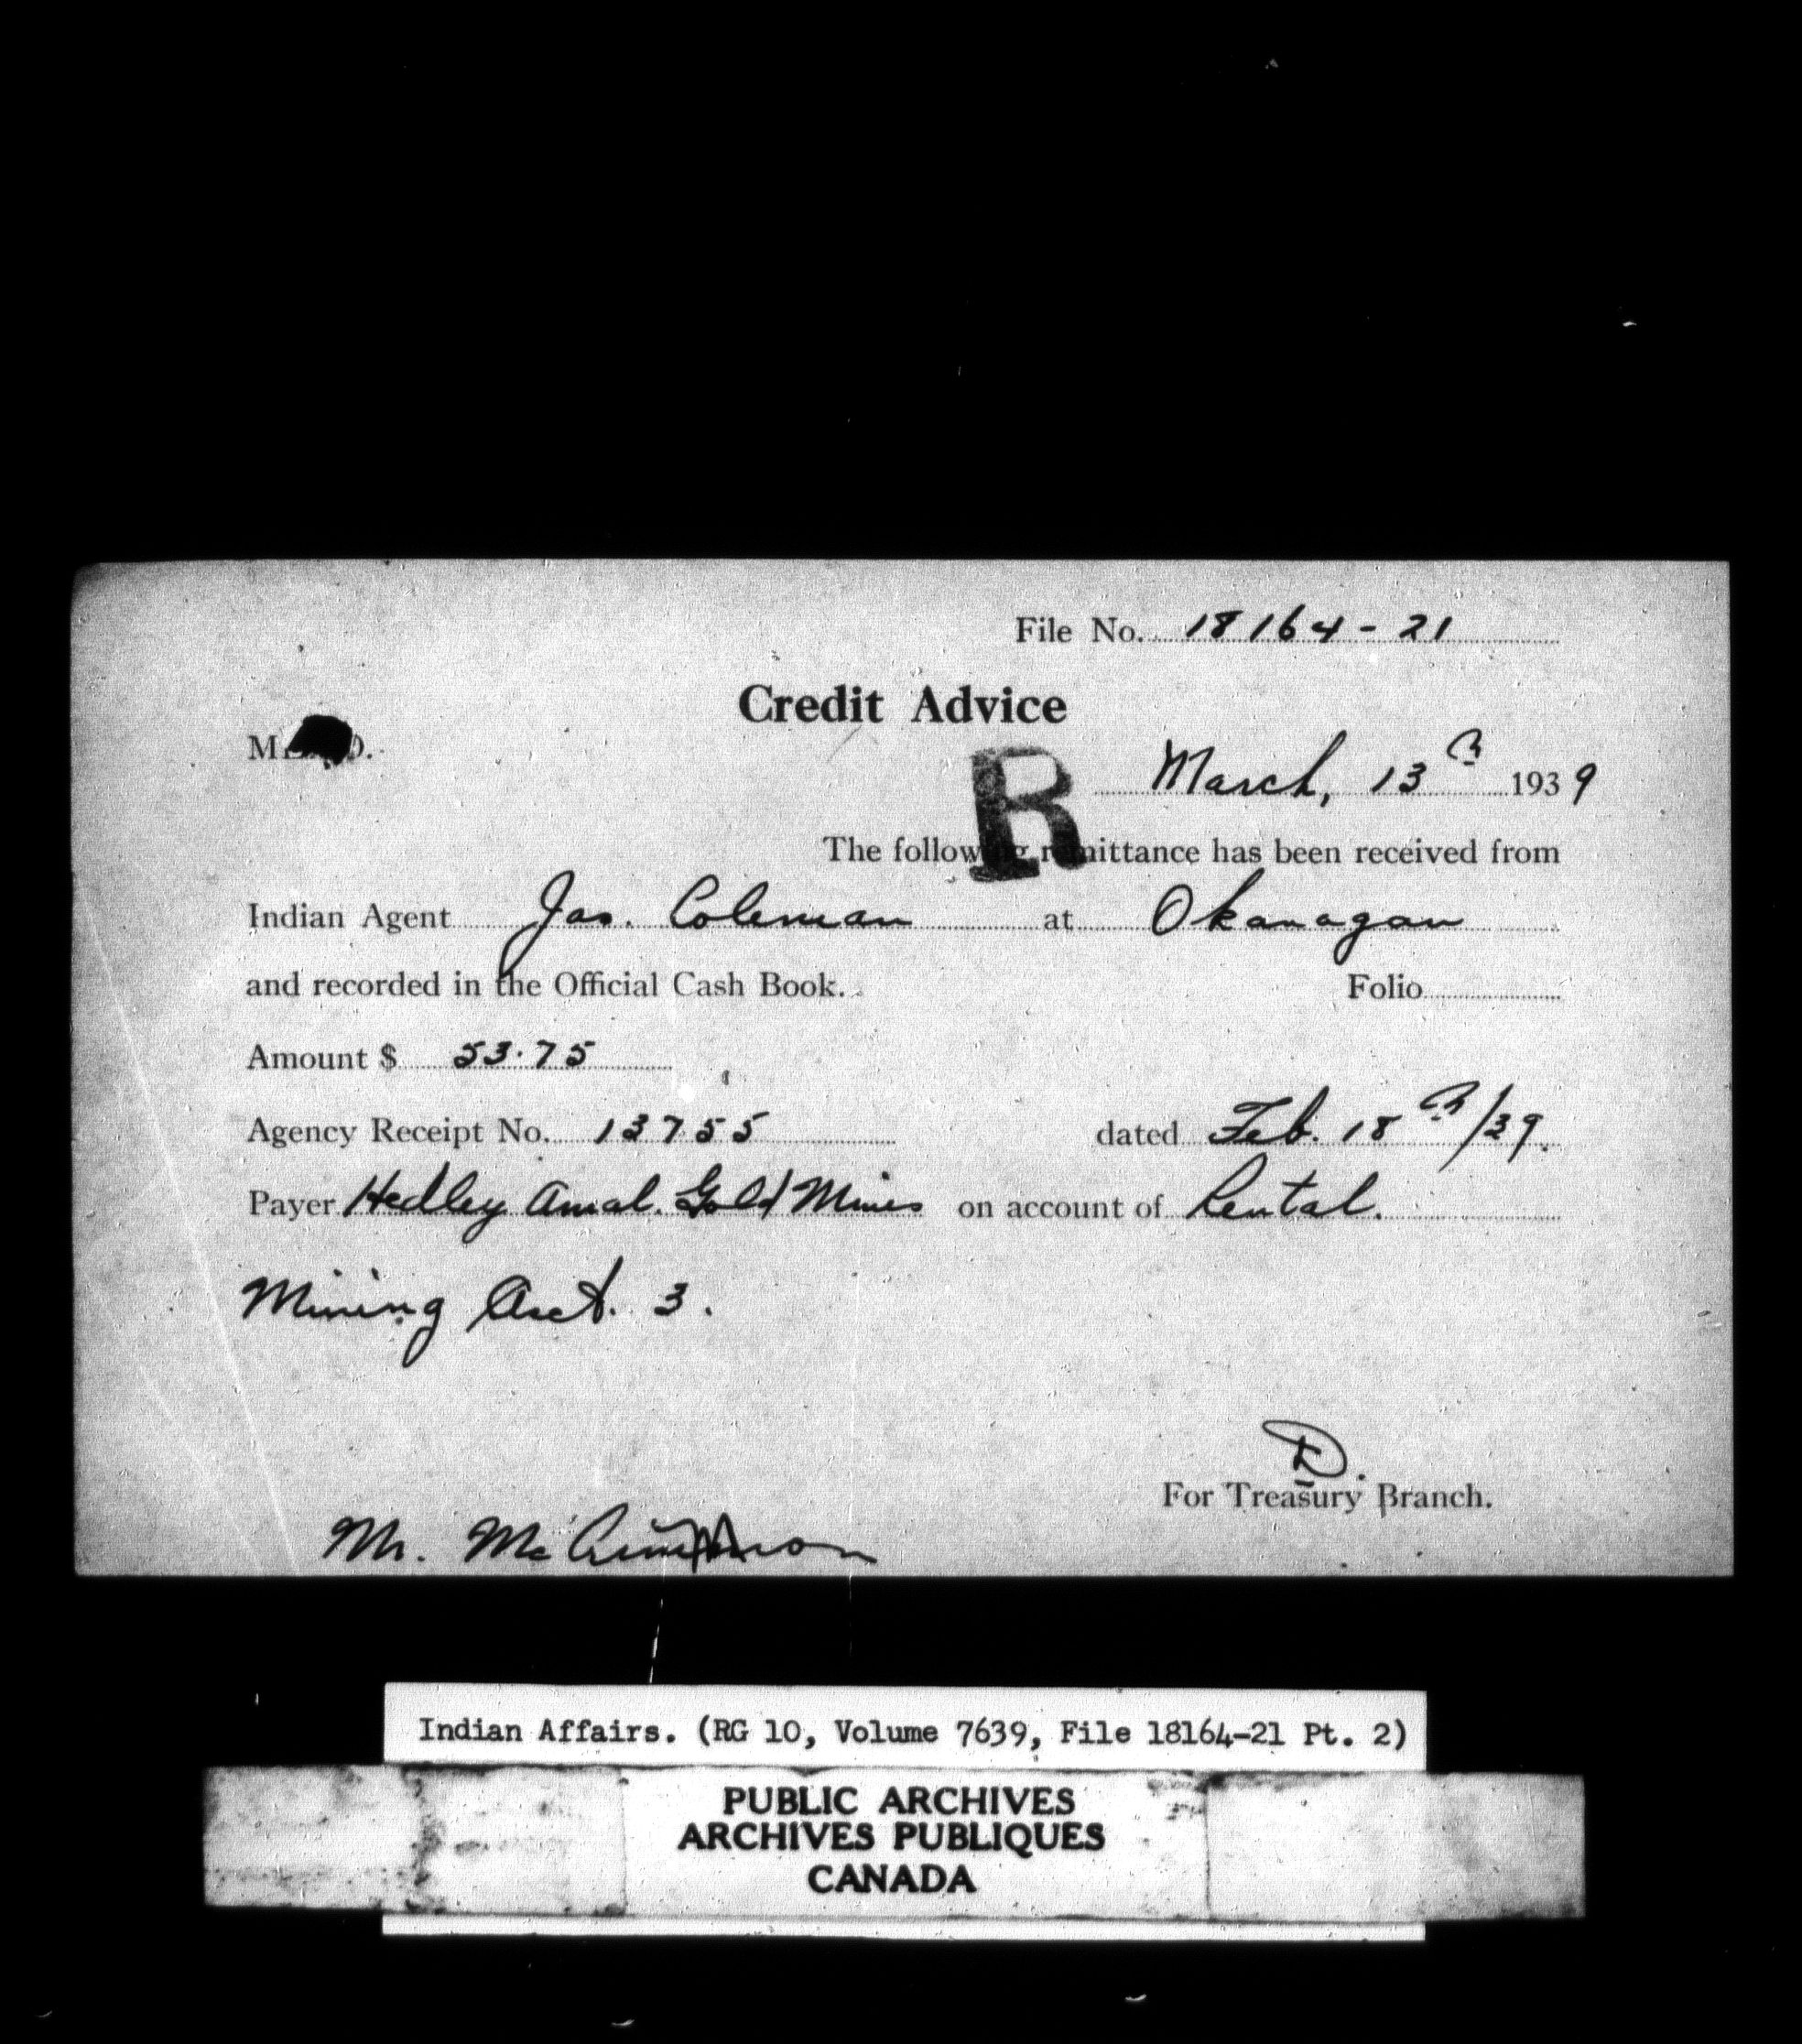 File No. 18164-21
Credit Advice
R
March, 13th 1939
The following remittance has been received from
Indian Agent Jas. Coleman at Okanagan
and recorded in the Official Cash Book. Folio
Amount $ 53.75
Agency Receipt No. 13755 dated Feb. 18th/39.
Payer Hedley Amal. Gold Mines on account of Rental.
Mining Acct. 3.
D.
For Treasury Branch.
Mr.
Indian Affairs. (RG 10, Volume 7639, File 18164-21 Pt. 2)
PUBLIC ARCHIVES
ARCHIVES PUBLIQUES
CANADA